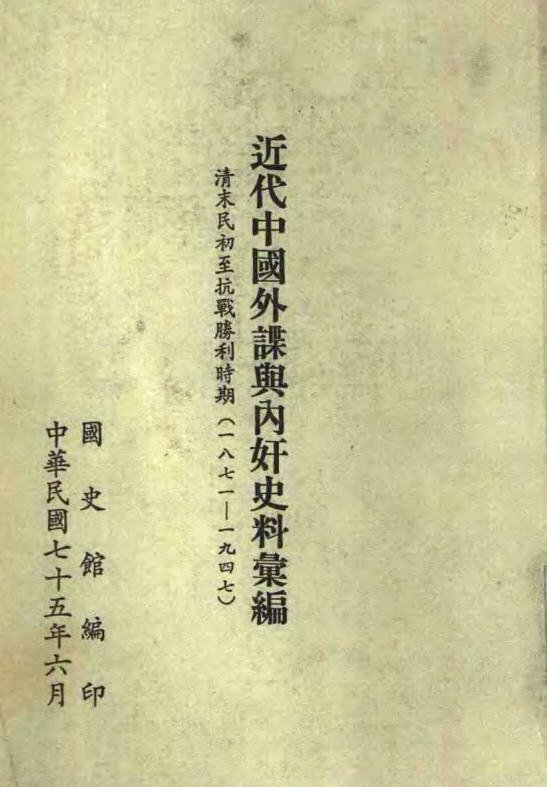 近代中國外諜與內奸史料彙編
清末民初至抗戰勝利時期(一八七一—一九四七)
國史館編印
中華民國七十五年六月